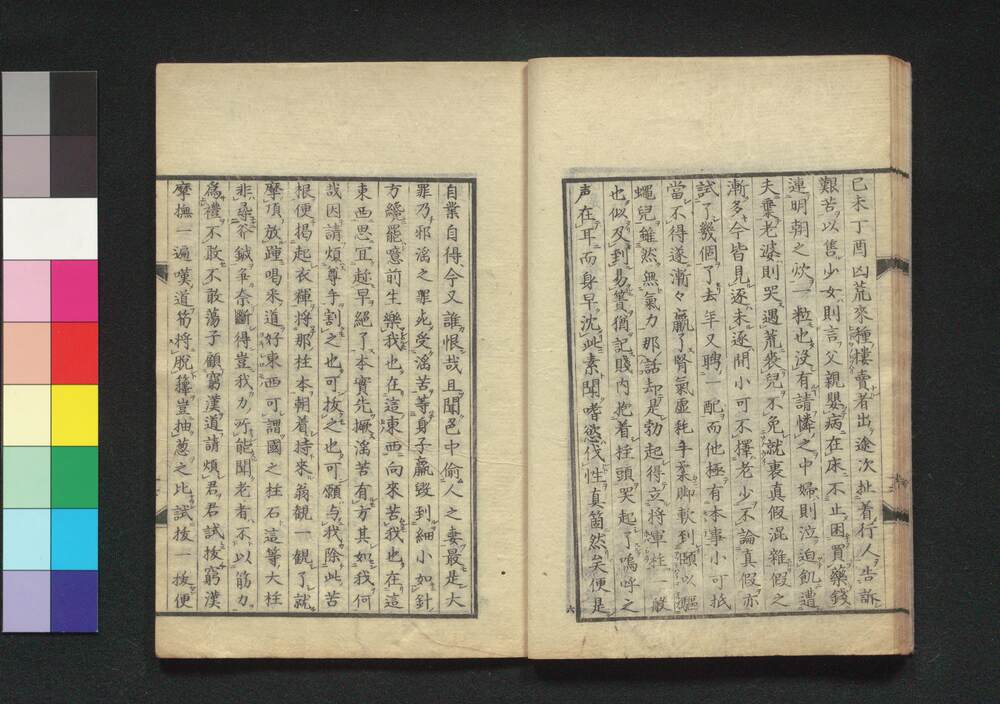 己未丁酉凶荒來種樓賣者出途次扯着行人告訴
艱苦以售少女則言父親嬰病在床不止困買藥錢
連明朝之炊一粒也没有請憐之中婦則泣迫飢遭
夫棄老婆則哭遇荒喪兒不免就裏真假混雜假之
漸多今皆見逐未逐開小可不擇老少不論真假亦
試了幾個了去年又聘一配而他極有本事小可抵
當不得遂漸々羸了腎氣虛耗手柔脚軟到頤以驅
蠅兒雖然無氣力那話却是勃起得立將軍柱一般
也似及到易簀猶記賤内抱着拄頭哭起了嗚呼之
声在耳而身早沈此素聞嗜慾伐性真箇然矣便是
六
自業自得今又誰恨哉且聞邑中偷人之妻最是大
罪乃邪淫之罪此受淫苦等身子羸毀到細小如針
方纔罷意前生樂我也在這東西向來苦我也在這
東西思宜趁早絕了本實先撅淫苦有方其如我何
哉因請煩尊手割之也可拔之也可願与我除此苦
根便揭起衣褌將那拄本朝着持來翁觀一觀了就
摩頂放踵喝采道好東西可謂國之柱石這等大柱
非尋斧鋮争奈斷得豈我力所能聞老者不以筋力
為禮不敢不敢蕩子顧窮漢道請煩君君試拔窮漢
摩撫一遍嘆道筍將脱籜豈抽蔥之比試拔一拔便